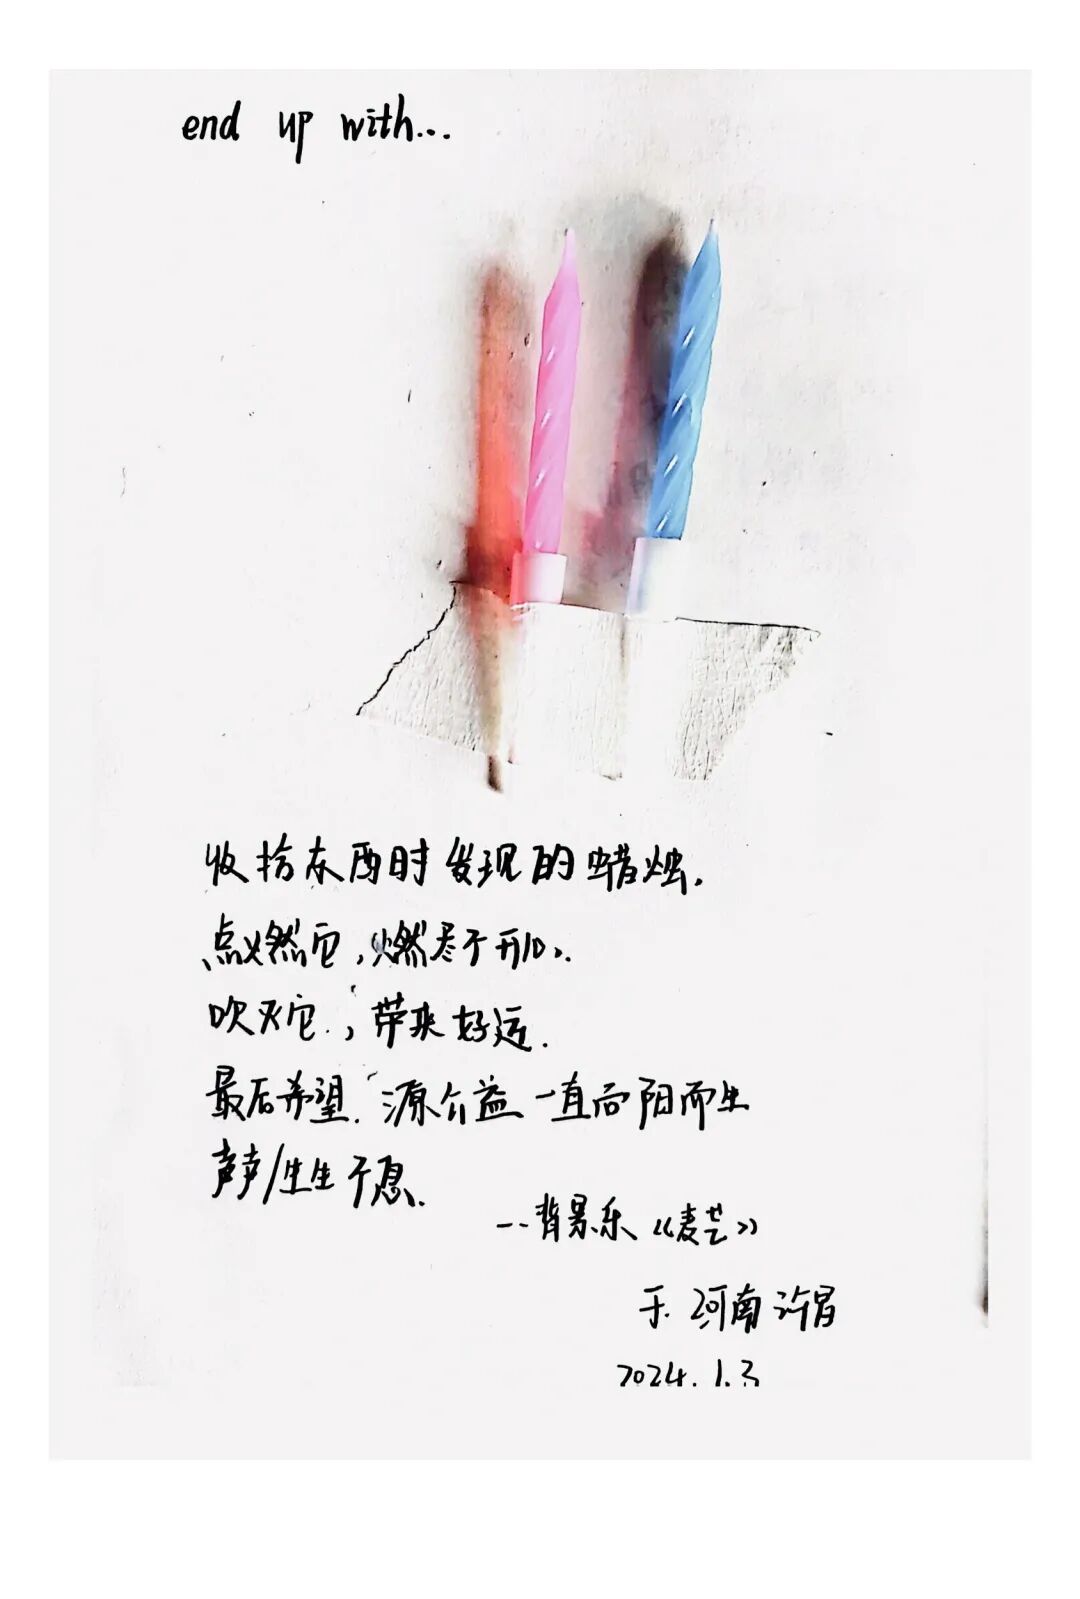 end up with...
收拾东西时发现的蜡烛.
点燃它,燃尽于
吹灭它,带来好运.
最后希望.源公益一直向阳而生
声声/生生于愿.
--背景乐《麦芒》
于.河南许昌
2024.1.3